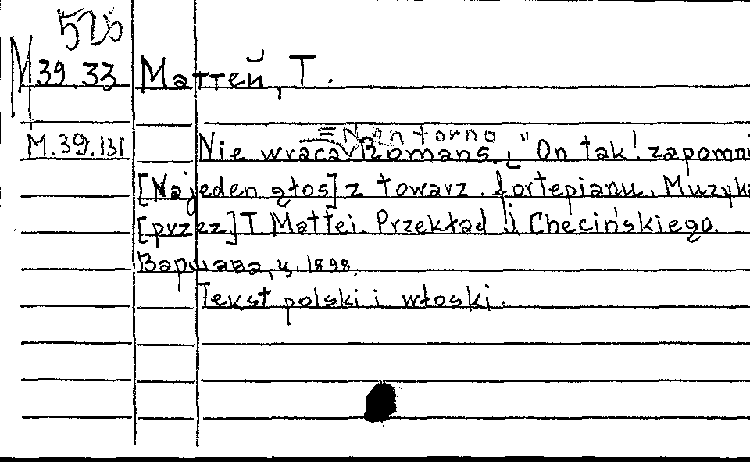 525
M.39.33 Маттей, Т.
= Non torno
M.39.131 Nie wraca! Romans. "On tak! zapomn
[Na jeden głos] z towarz. fortepianu. Muzyk
[przez] T Mattei. Przekład J Checińskiego.
Варшава, ц. 1898.
Tekst polski i włoski.